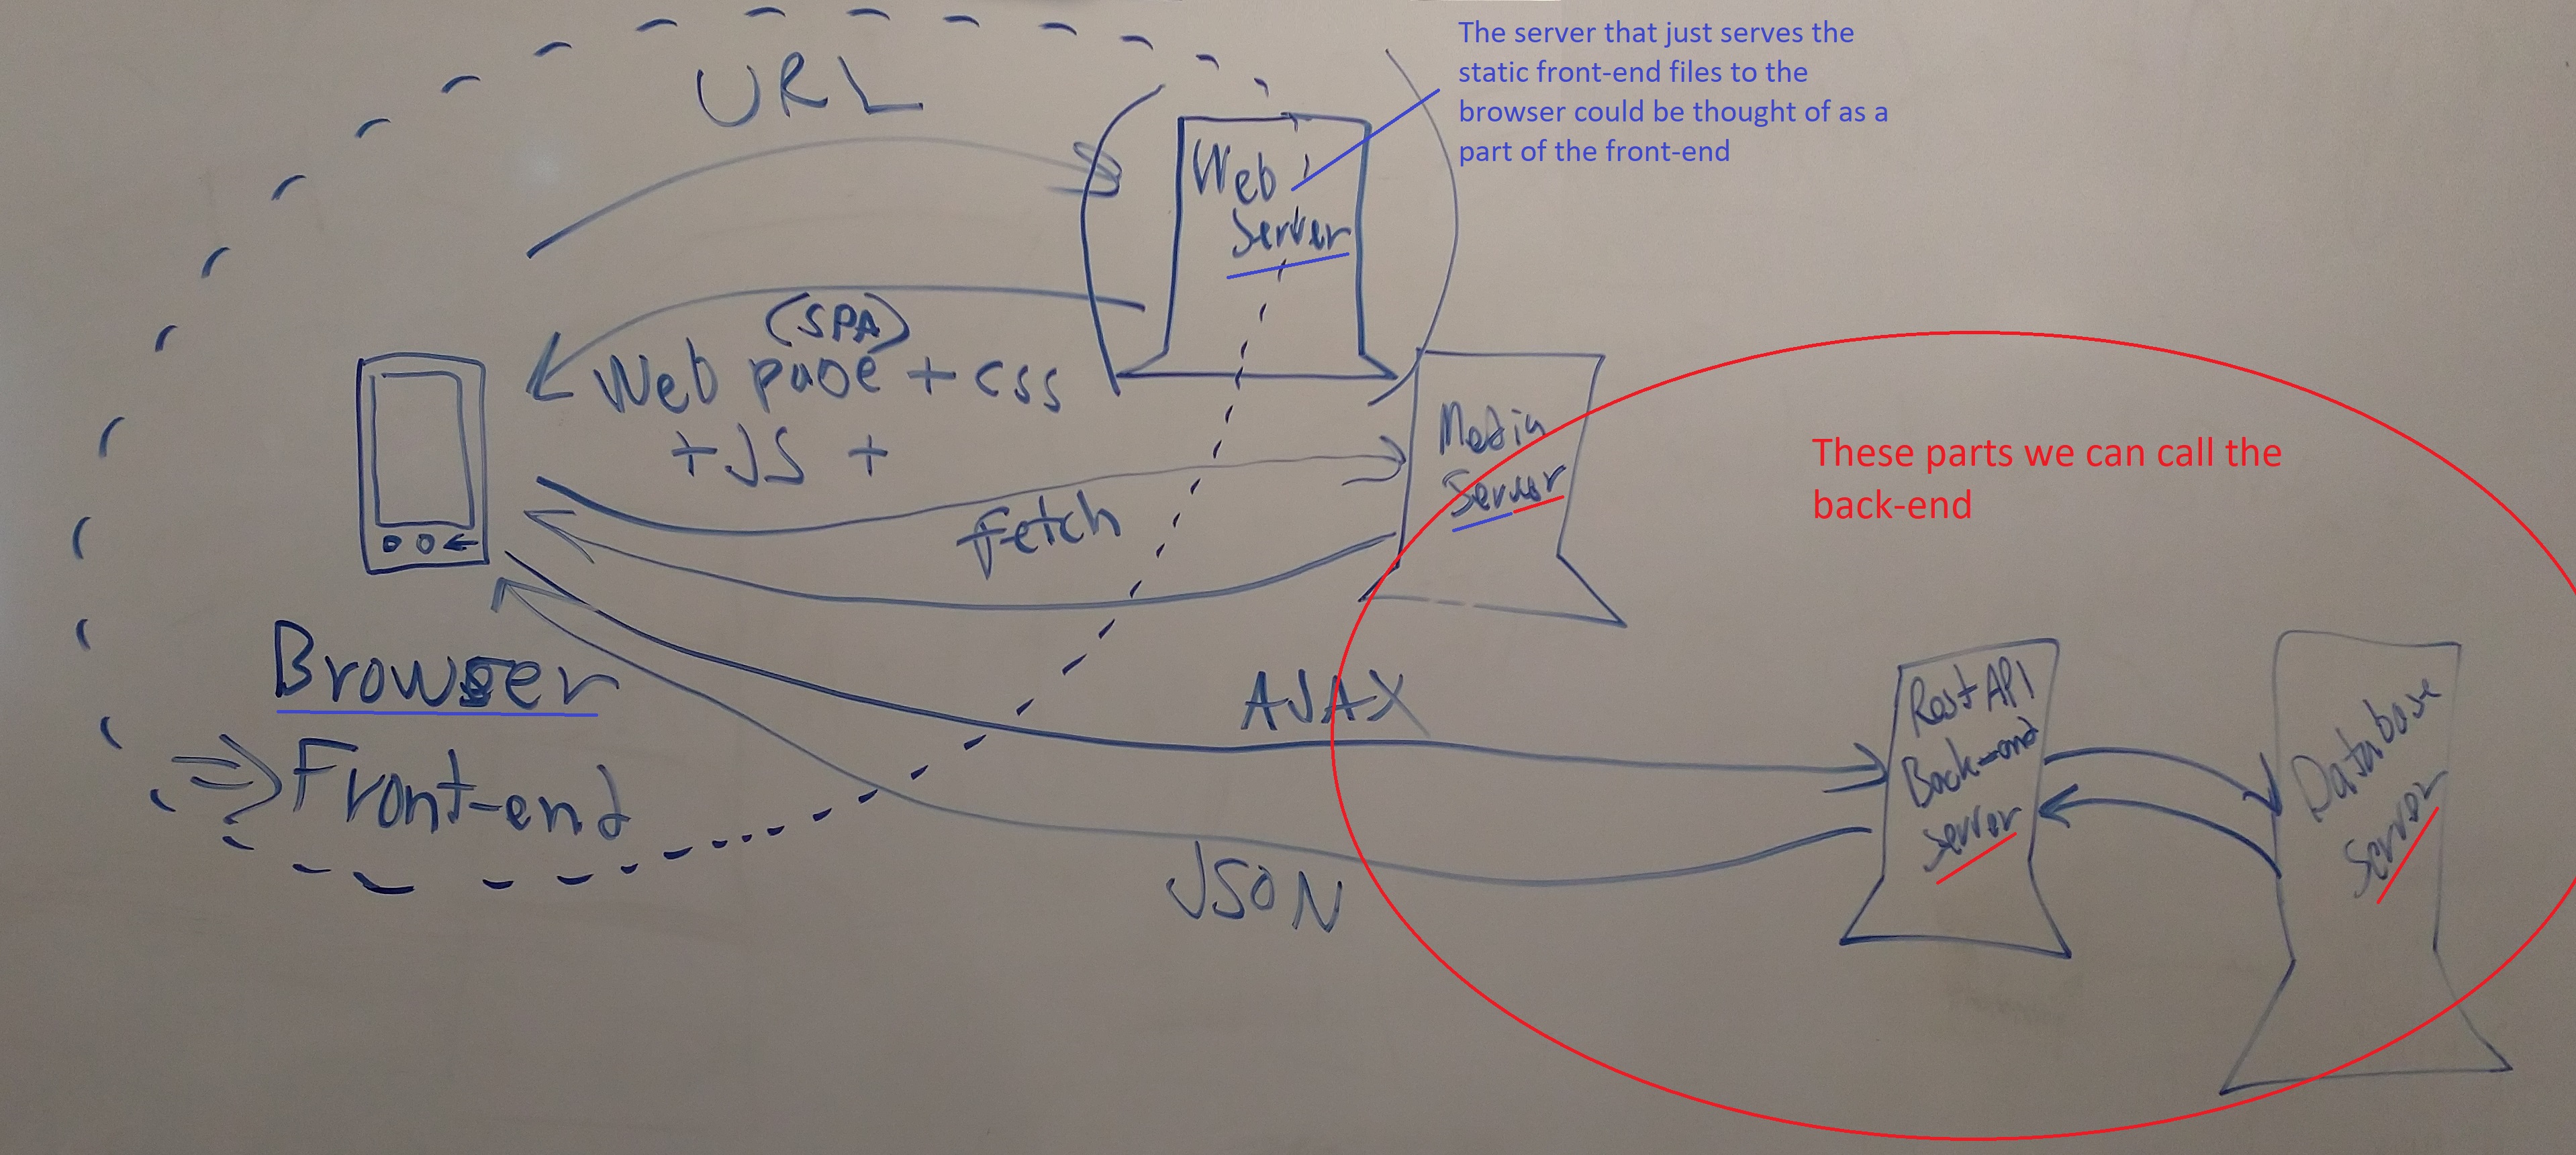 URL
The server that just serves the
static front-end files to the
browser could be thought of as a
part of the front-end
Web
Server
(SPA)
Web page + css
+ JS +
Media
Server
Fetch
These parts we can call the
back-end
Browser
⇒ Front-end
AJAX
JSON
Rest API
Back-end
server
Database
Server